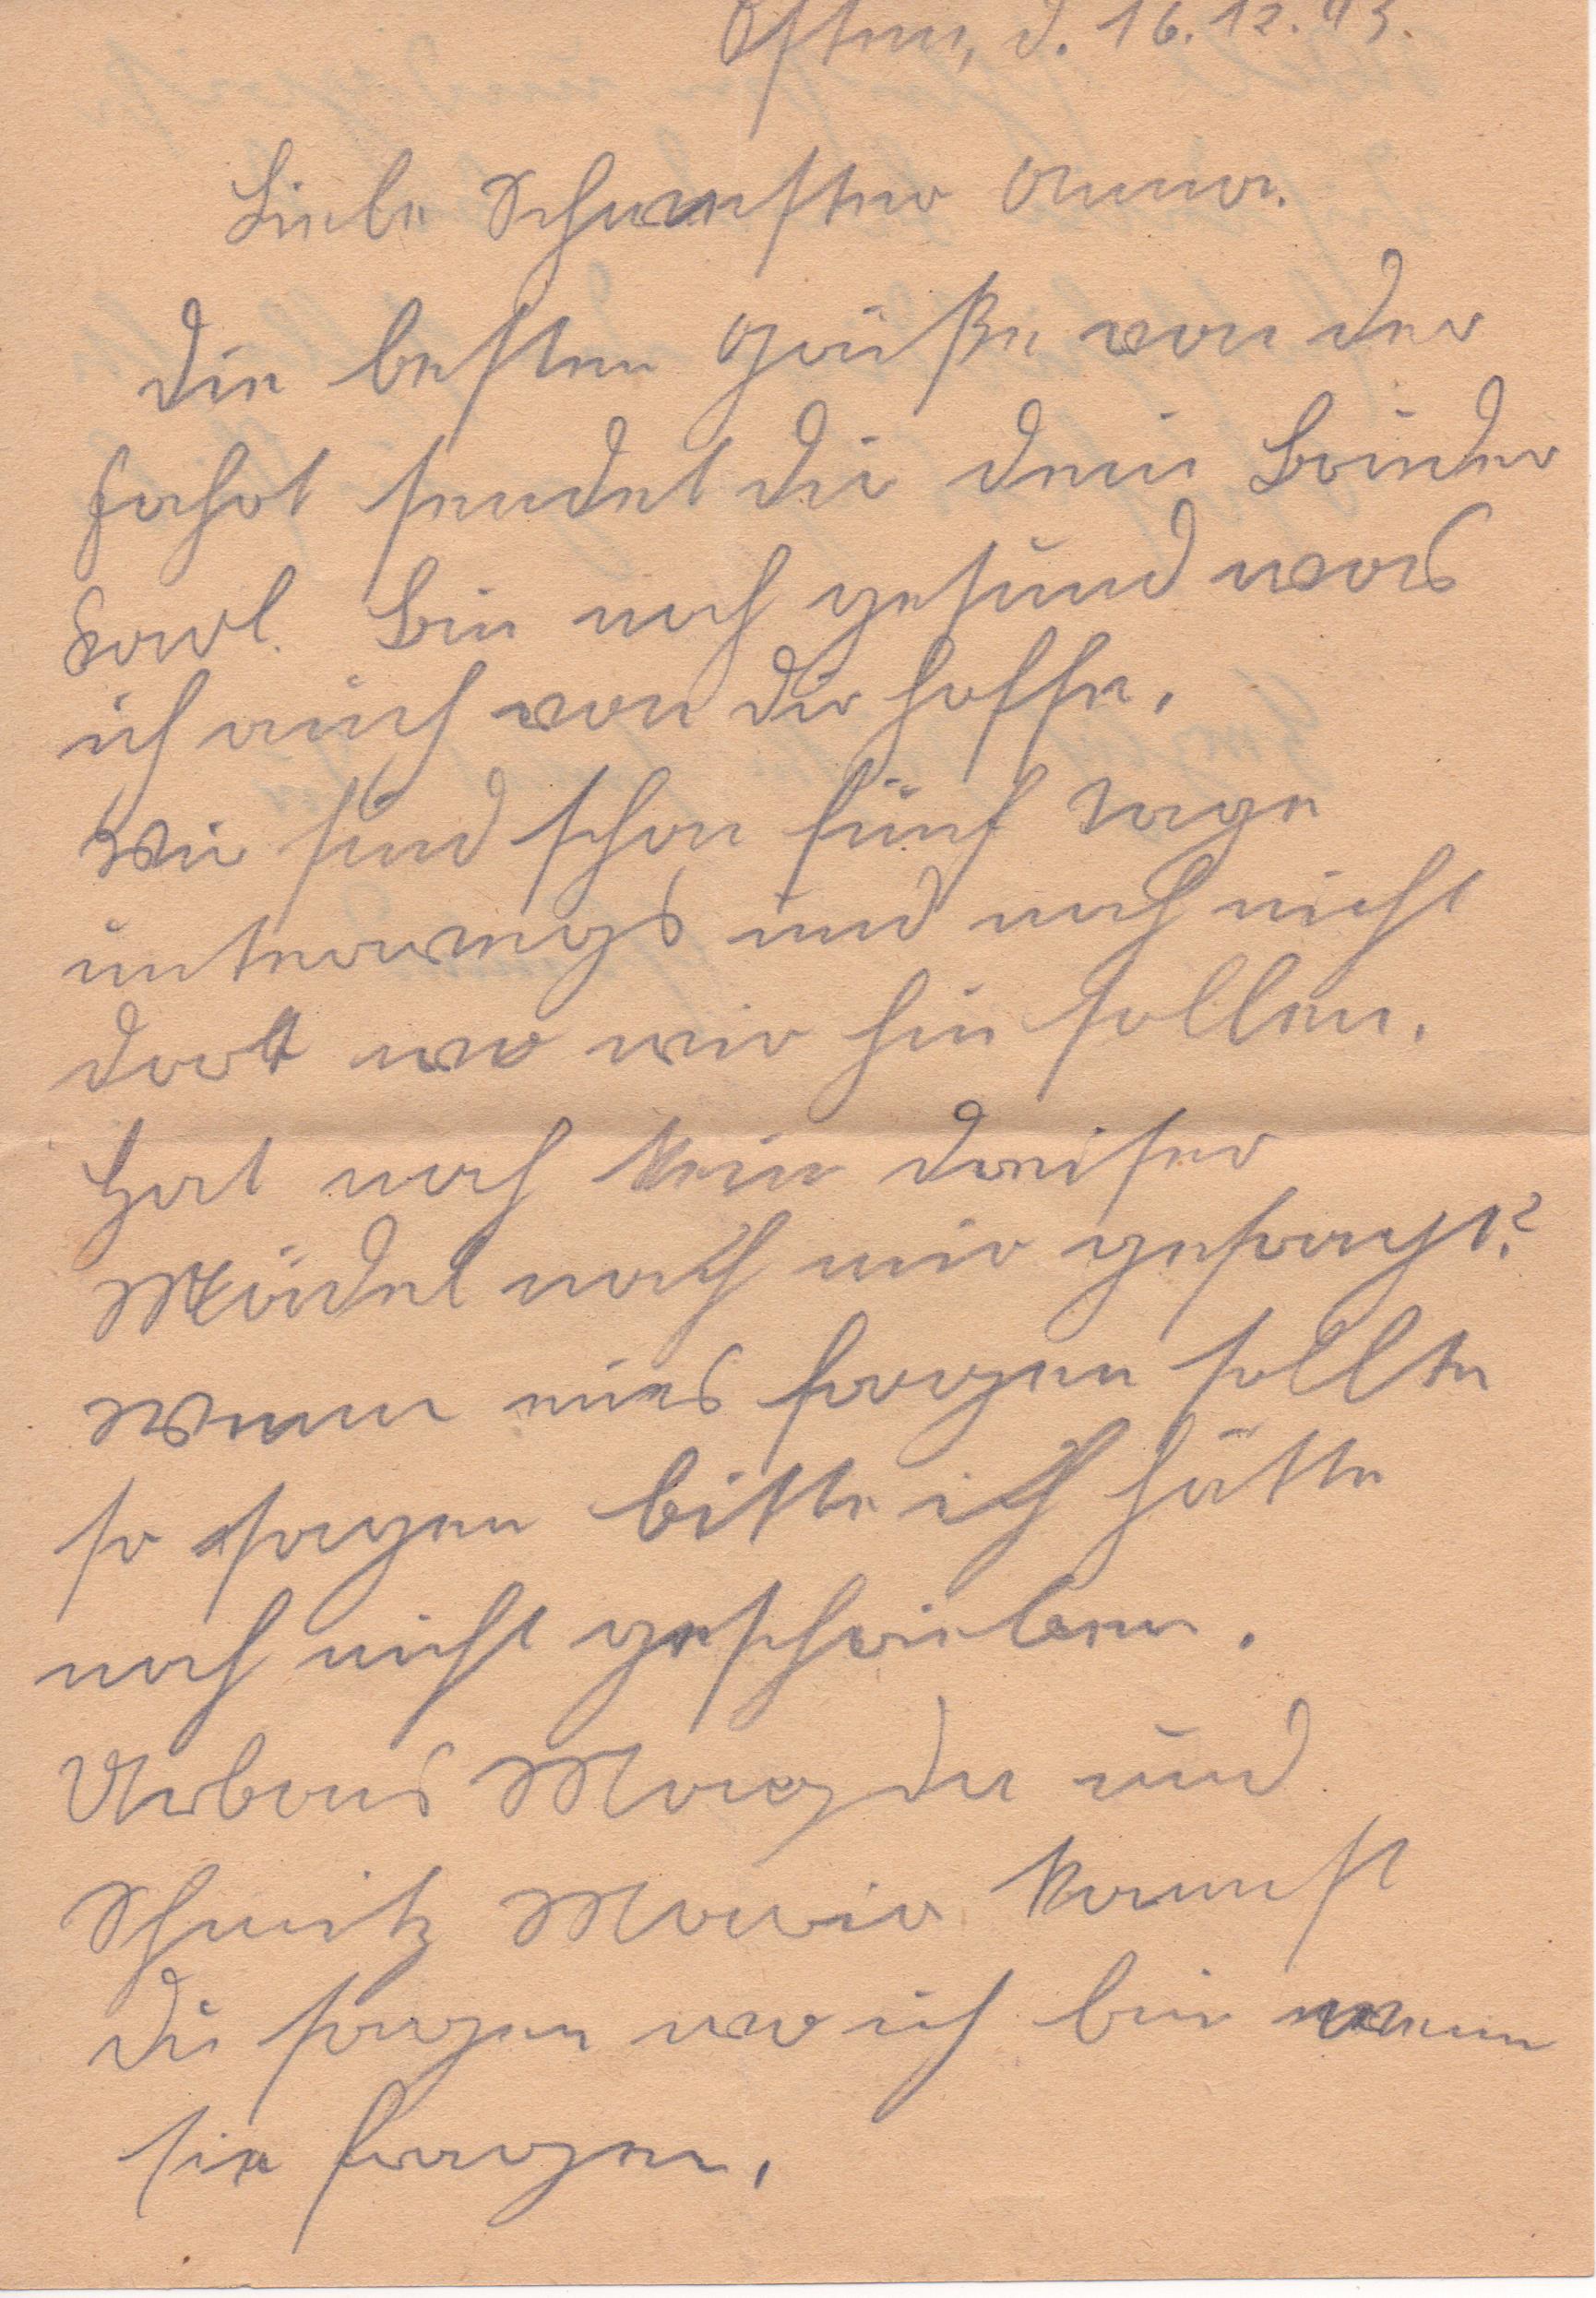 Osten, d. 16.12.43.
Liebe Schwester Anna.
Die besten Grüße von der
Fahrt sendet dir dein Bruder
Karl. Bin noch gesund was
ich auch von dir hoffe.
Wir sind schon fünf Tage
unterwegs und noch nicht
dort wo wir hin sollen.
Hat noch kein
Mädel nach mir gefragt?
Wenn eines fragen sollte
so sagen bitte ich hätte
noch nicht geschrieben.
Urbans Magda und
Schmitz Maria kannst
du sagen wo ich bin wenn
sie fragen.